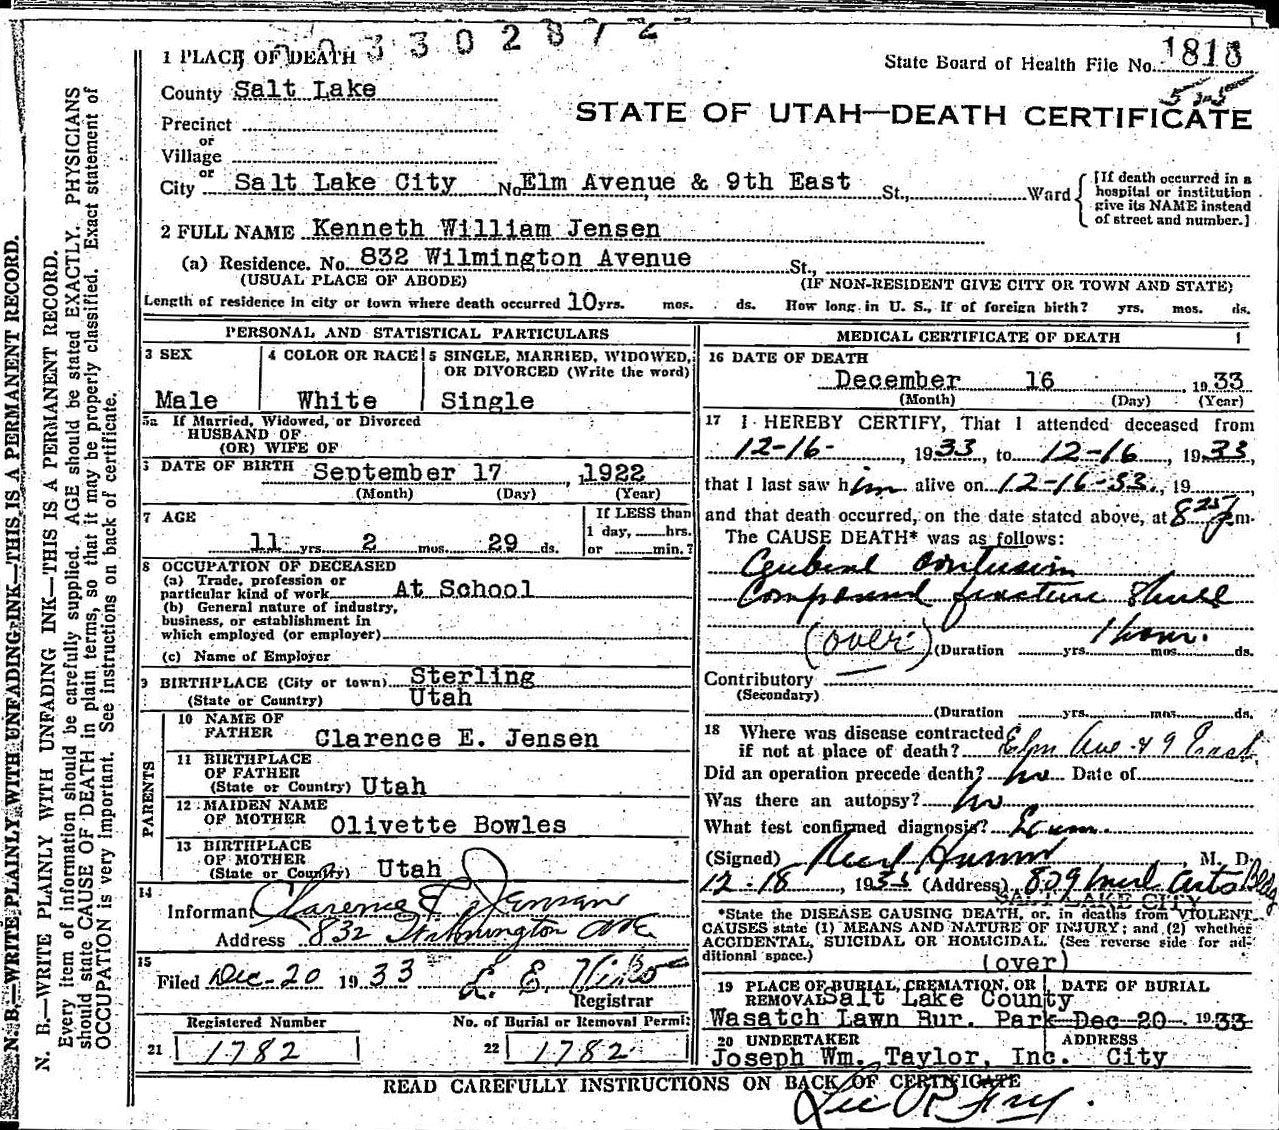 3 3 0 2 8 7 2
1 PLACE OF DEATH
State Board of Health File No. 1818
County Salt Lake
STATE OF UTAH—DEATH CERTIFICATE
Precinct
or
Village
or
City Salt Lake City No. Elm Avenue & 9th East St., Ward
[If death occurred in a hospital or institution give its NAME instead of street and number.]
2 FULL NAME Kenneth William Jensen
(a) Residence. No. 832 Wilmington Avenue St.,
(USUAL PLACE OF ABODE) (IF NON-RESIDENT GIVE CITY OR TOWN AND STATE)
Length of residence in city or town where death occurred 10 yrs. mos. ds. How long in U. S., if of foreign birth? yrs. mos. ds.
PERSONAL AND STATISTICAL PARTICULARS
3 SEX 4 COLOR OR RACE 5 SINGLE, MARRIED, WIDOWED, OR DIVORCED (Write the word)
Male White Single
5a If Married, Widowed, or Divorced
HUSBAND OF
(OR) WIFE OF
6 DATE OF BIRTH September 17, 1922
(Month) (Day) (Year)
7 AGE
If LESS than
1 day, hrs.
or min.?
11 yrs. 2 mos. 29 ds.
8 OCCUPATION OF DECEASED
(a) Trade, profession or
particular kind of work At School
(b) General nature of industry,
business, or establishment in
which employed (or employer)
(c) Name of Employer
9 BIRTHPLACE (City or town) Sterling
(State or Country) Utah
PARENTS
10 NAME OF
FATHER Clarence E. Jensen
11 BIRTHPLACE
OF FATHER
(State or Country) Utah
12 MAIDEN NAME
OF MOTHER Olivette Bowles
13 BIRTHPLACE
OF MOTHER
(State or Country) Utah
14
Informant Clarence E. Jensen
Address 832 Wilmington Ave.
15
Filed Dec-20 1933
Registrar
Registered Number No. of Burial or Removal Permit
21 1782 22 1782
MEDICAL CERTIFICATE OF DEATH
16 DATE OF DEATH
December 16, 1933
(Month) (Day) (Year)
17 I HEREBY CERTIFY, That I attended deceased from
12-16-, 1933, to 12-16, 1933,
that I last saw him alive on 12-16-33, 19
and that death occurred, on the date stated above, at 8 25 p.m.
The CAUSE DEATH* was as follows:
Cerebral contusion
Compound fracture Skull
(over) (Duration yrs. 1 hour. mos. ds.
Contributory
(Secondary)
(Duration yrs. mos. ds.
18 Where was disease contracted
if not at place of death? Elm Ave & 9 East
Did an operation precede death? no Date of
Was there an autopsy? no
What test confirmed diagnosis? Exam.
(Signed) , M. D.
12-18, 1933 (Address) 809 Med Arts Bldg
SALT LAKE CITY
*State the DISEASE CAUSING DEATH, or, in deaths from VIOLENT
CAUSES state (1) MEANS AND NATURE OF INJURY; and (2) whether
ACCIDENTAL, SUICIDAL OR HOMICIDAL. (See reverse side for ad-
ditional space.)
(over)
19 PLACE OF BURIAL, CREMATION, OR REMOVAL DATE OF BURIAL
Salt Lake County
Wasatch Lawn Bur. Park Dec-20- 1933
20 UNDERTAKER ADDRESS
Joseph Wm. Taylor, Inc. City
READ CAREFULLY INSTRUCTIONS ON BACK OF CERTIFICATE
N. B.—WRITE PLAINLY WITH UNFADING INK—THIS IS A PERMANENT RECORD.
N. B.—WRITE PLAINLY WITH UNFADING INK—THIS IS A PERMANENT RECORD.
Every item of information should be carefully supplied. AGE should be stated EXACTLY. PHYSICIANS
should state CAUSE OF DEATH in plain terms, so that it may be properly classified. Exact statement of
OCCUPATION is very important. See instructions on back of certificate.